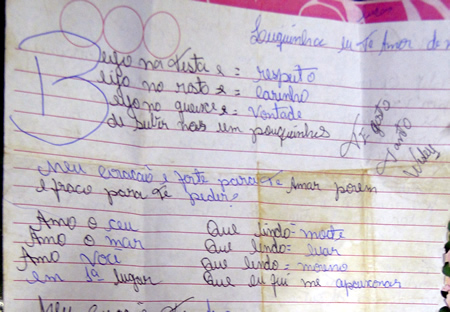 Louquinha eu Te Amor de
Beijo na Testa e = respeito
Beijo no rosto e = carinho
Beijo no queixo e = Vontade
de subir mas um pouquinhos
Ti gosto
Tanto
Meu coração e forte para Te Amar porem
e fraco para Te
Amo o ceu Que lindo = noite
Amo o mar Que lindo = luar
Amo Voce Que lindo = moreno
em 1º lugar Que eu fui me apaixonar
Meu